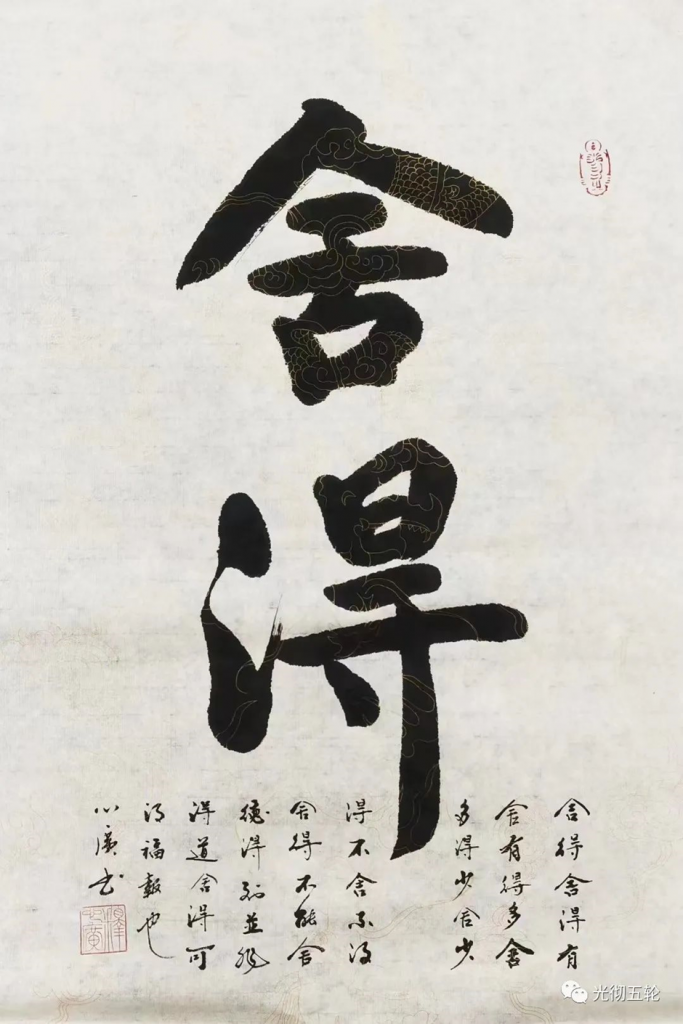 舍得
舍得舍得有
舍有得多舍
多得少舍少
得不舍不得
舍得不能舍
德得到並非
得道舍得可
得福報也
心廣书
光彻五轮